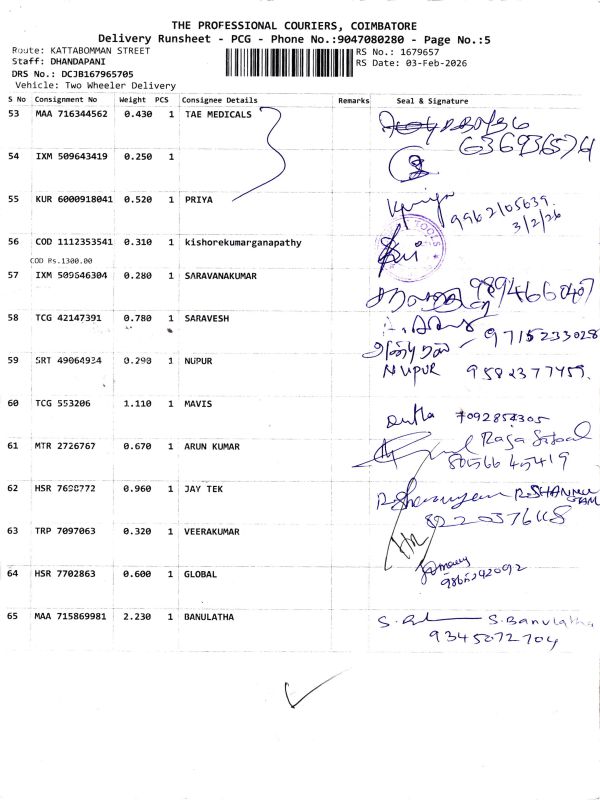 THE PROFESSIONAL COURIERS, COIMBATORE
Delivery Runsheet - PCG - Phone No.:9047080280 - Page No.:5
Route: KATTABOMMAN STREET
RS No.: 1679657
Staff: DHANDAPANI
RS Date: 03-Feb-2026
DRS No.: DCJB167965705
Vehicle: Two Wheeler Delivery
S No Consignment No Weight PCS Consignee Details Remarks Seal & Signature
53 MAA 716344562 0.430 1 TAE MEDICALS
54 IXM 509643419 0.250 1
55 KUR 6000918041 0.520 1 PRIYA
9962105639.
3/2/26
56 COD 1112353541 0.310 1 kishorekumarganapathy
TOOLS
COD Rs.1300.00
57 IXM 509646304 0.280 1 SARAVANAKUMAR
9894660407
58 TCG 42147391 0.780 1 SARAVESH
9715233028
59 SRT 49064934 0.290 1 NUPUR
NUPUR 9582377459.
60 TCG 553206 1.110 1 MAVIS
7092854305
61 MTR 2726767 0.670 1 ARUN KUMAR
Raja
8056645419
62 HSR 7698772 0.960 1 JAY TEK
R.SHANMUGAM
8220376118
63 TRP 7097063 0.320 1 VEERAKUMAR
64 HSR 7702863 0.600 1 GLOBAL
9865242092
65 MAA 715869981 2.230 1 BANULATHA
S. Banulatha
9345072704